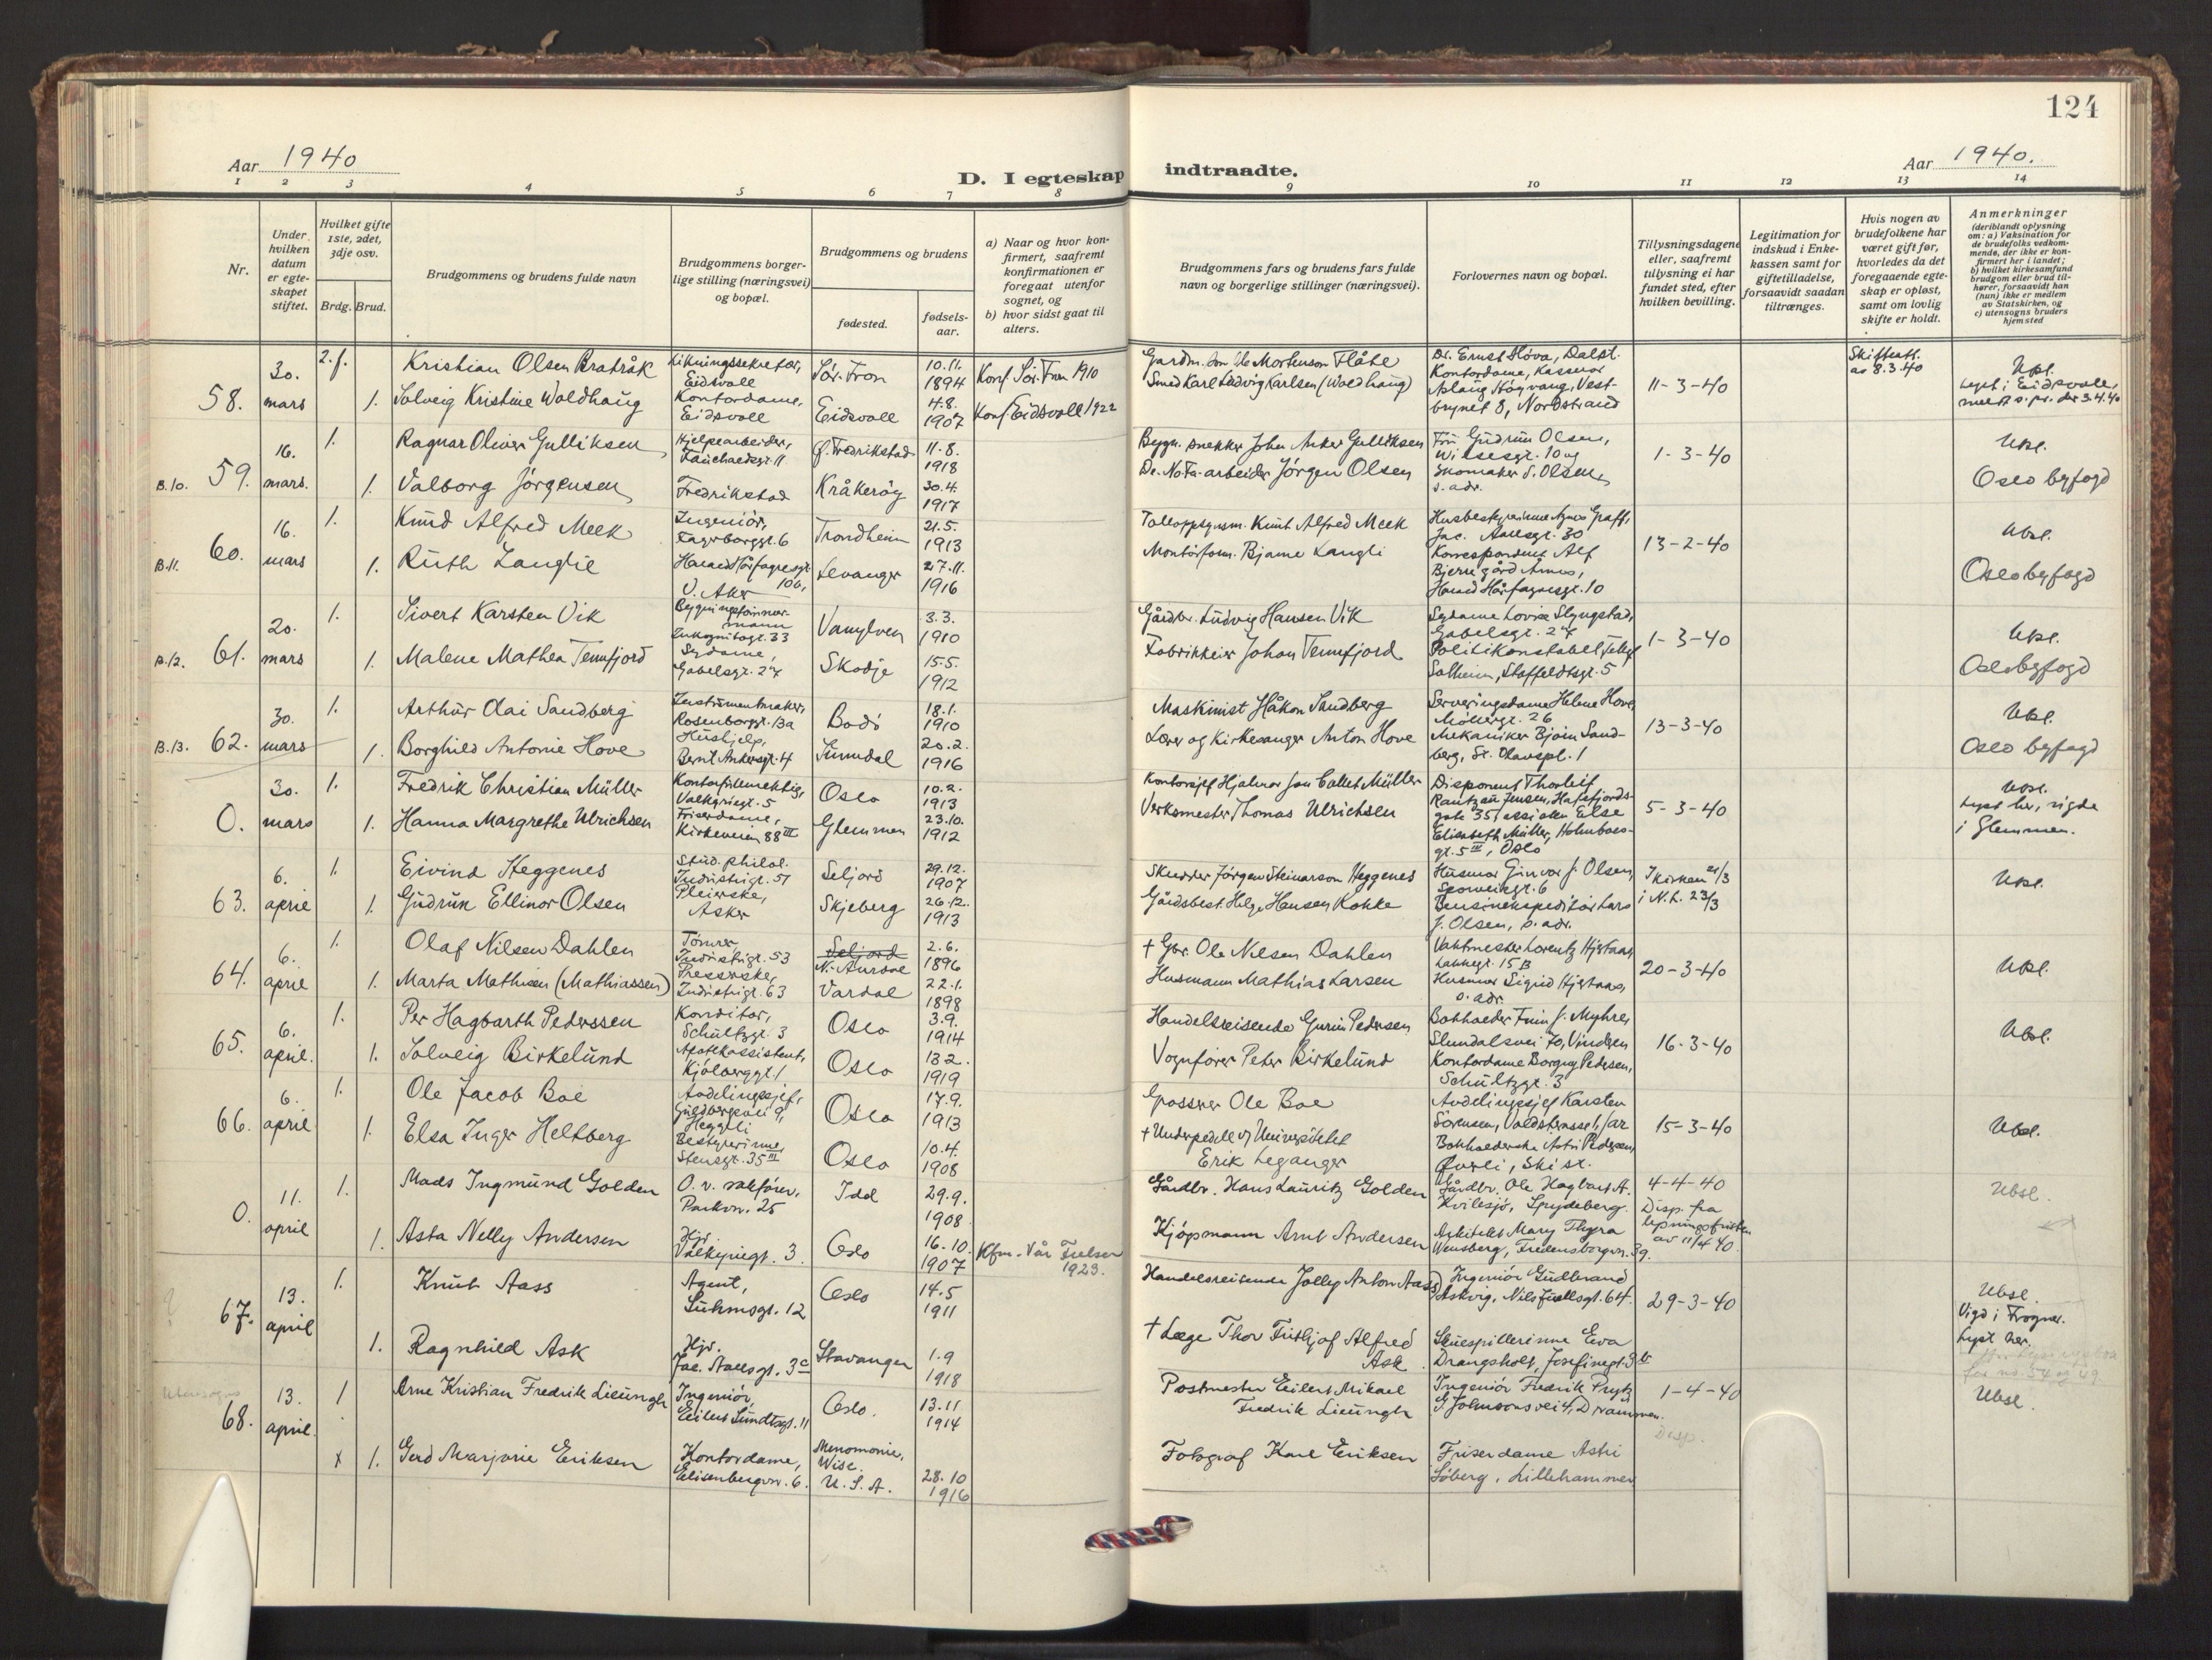 124
Aar 1940
D. I egteskap indtraadte.
Aar 1940.
1 2 3 4 5 6 7 8 9 10 11 12 13 14
Nr.
Under hvilken datum er egteskapet stiftet.
Hvilket gifte 1ste, 2det, 3dje osv.
Brdg. Brud.
Brudgommens og brudens fulde navn
Brudgommens borgerlige stilling (næringsvei) og bopæl.
Brudgommens og brudens
fødested.
fødselsaar.
a) Naar og hvor konfirmert, saafremt konfirmationen er foregaat utenfor sognet, og
b) hvor sidst gaat til alters.
Brudgommens fars og brudens fars fulde navn og borgerlige stillinger (næringsvei).
Forlovernes navn og bopæl.
Tillysningsdagene eller, saafremt tillysning ei har fundet sted, efter hvilken bevilling.
Legitimation for indskud i Enkekassen samt for giftetilladelse, forsaavidt saadan tiltrænges.
Hvis nogen av brudefolkene har været gift før, hvorledes da det foregaaende egteskap er opløst, samt om lovlig skifte er holdt.
Anmerkninger
(deriblandt oplysning om: a) Vaksination for de brudefolks vedkommende, der ikke er konfirmert her i landet;
b) hvilket kirkesamfund brudgom eller brud tilhører, forsaavidt han (hun) ikke er medlem av Statskirken, og
c) utensogns bruders hjemsted
58. 30. mars 2. f. Kristian Olsen Bratråk
Eidsvoll Sør-Fron 10.11. 1894 Konf Sør-Fron 1910
1. Solveig Kristine Woldhaug Kontordame, Eidsvoll Eidsvoll 4.8. 1907 Konf Eidsvoll 1922
Smed Karl Ludvig Karlsen (Woldhaug)
Kontordame, Nordstrand
11-3-40
Skifteatt. av 8.3.40
lyst i Eidsvoll,
B.10. 59. 16. mars. 1. Ragnar Oliver Gulliksen Hjelpearbeider, Ø. Fredrikstad 11.8. 1918
1. Valborg Jörgensen Fredrikstad Kråkeröy 30.4. 1917
Bygn. snekker John Anker Gulliksen
De-No-Fa-arbeider Jörgen Olsen
Fru Gudrun Olsen, Wilsesgt. 10 og
Skomaker S. Olsen, s. adr.
1-3-40 Ubsl. Oslo byfogd
B.11. 60. 16. mars 1. Knud Alfred Meek Ingeniör, Fagerborggt. 6 Trondheim 21.5. 1913
1. Ruth Langlie Harald Hårfagresgt. 10b, V. Aker Levanger 27.11. 1916
Tolloppsynsm. Knut Alfred Meek
Montörform. Bjarne Langli
Husbestyrerinne Agnes Graff, Jac. Aallsgt. 30
Korrespondent Alf Bjerregård Amus, Harald Hårfagresgt. 10
13-2-40 Ubsl. Oslo byfogd
B.12. 61. 20. mars 1. Sivert Karsten Vik Bygningstömmermann Inkognitogt. 33 Vanylven 3.3. 1910
1. Malene Mathea Tennfjord Sydame, Gabelsgt. 27 Skodje 15.5. 1912
Gårdbr. Ludvig Hansen Vik
Fabrikkeier Johan Tennfjord
Sydame Lovise Slyngstad, Gabelsgt. 27
Politikonstabel Solheim, Staffeldtsgt. 5
1-3-40 Ubsl. Oslo byfogd
B.13. 62. 30. mars 1. Arthur Olai Sandberg Instrumentmaker, Rosenborggt. 13a Bodö 18.1. 1910
1. Borghild Antonie Hove Hushjelp, Bernt Ankersgt. 4 Sunndal 20.2. 1916
Maskinist Håkon Sandberg
Lærer og Kirkesanger Anton Hove
Serveringsdame Helene Hove, Möllergt. 26
Mekaniker Björn Sandberg, St. Olavspl. 1
13-3-40 Ubsl. Oslo byfogd
0. 30. mars 1. Fredrik Christian Müller Kontorfullmektig, Valkyriegt. 5 Oslo 10.2. 1913
1. Hanna Margrethe Ulrichsen Friserdame, Kirkeveien 88 III Glemmen 23.10. 1912
Kontorsjef Hjalmar Jan Collett Müller
Verksmester Thomas Ulrichsen
Disponent Thorleif Rantzau Jensen, Hafrsfjordsgate 35
Elisabeth Müller, Holmboesgt. 5 III, Oslo
5-3-40 Ubsl. Lyst her, vigde i Glemmen.
63. 6. april 1. Eivind Heggenes Stud. philol. Industrigt. 51 Seljord 29.12. 1907
1. Gudrun Ellinor Olsen Pleierske, Asker Skjeberg 26.12. 1913
Skredder Jörgen Steinarson Heggenes
Gårdsbest. Helge Hansen Kokke
Husmor Ginvor J. Olsen, Sporveisgt. 6
Bensinekspeditör Lars J. Olsen, s. adr.
I kirken 21/3 i N.L. 23/3
Ubsl.
64. 6. april 1. Olaf Nilsen Dahlen Tömrer, Industrigt. 53 Seljord N.-Aurdal 2.6. 1896
1. Marta Mathisen (Mathiassen) Presserske, Industrigt. 63 Vardal 22.1. 1898
† Gbr. Ole Nilsen Dahlen
Husmann Mathias Larsen
Vaktmester Lorentz Hjertaas, Lakkegt. 15 B
Husmor Sigrid Hjertaas, s. adr.
20-3-40 Ubsl.
65. 6. april. 1. Per Hagbarth Pederssen Konditor, Schultzgt. 3 Oslo 3.9. 1914
1. Solveig Birkelund Apotekassistent, Kjölberggt. 1 Oslo 13.2. 1919
Handelsreisende Gunim Pedersen
Vognförer Peter Birkelund
Bokholder Finn J. Myhre, Slemdalsvei 70, Vinderen
Kontordame Borgny Pedersen, Schultzgt. 3
16-3-40 Ubsl.
66. 6. april 1. Ole Jacob Boe Avdelingssjef, Guldbergsvei 9, Heggeli Oslo 17.9. 1913
1. Elsa Inger Heltberg Bestyrerinne, Stensgt. 35 III Oslo 10.4. 1908
Grosserer Ole Boe
† Underpedell v/ Universitetet Erik Leganger
Avdelingssjef Karsten Sörensen,
Bokholderske Astri Pedersen, Ski st.
15-3-40 Ubsl.
0. 11. april 1. Mads Ingmund Golden O.r. sakförer, Parkvn. 25 Idd 29.9. 1908
1. Asta Nelly Andersen Hjv. Valkyriegt. 3. Oslo 16.10. 1907 Kfm. Vår Frelser 1923.
Gårdbr. Hans Lauritz Golden
Kjöpmann Arnt Andersen
Gårdbr. Ole Hagbart A. Kvilesjö, Spydeberg.
Arkitekt Mary Thyra Wensberg, Fredensborgvn. 39.
4-4-40 Disp. fra lysningsfristen av 11/4 40.
Ubsl.
67. 13. april 1. Knut Aass Agent, Suhmsgt. 12 Oslo 14.5 1911
1. Ragnhild Ask Hjv. Jac. Aallsgt. 3c Stavanger 1.9 1918
Handelsreisende Jolley Anton Aass
† Læge Thor Fritjof Alfred Ask
Ingeniör Gudbrand Askvig, Nils Juelsgt. 64.
Skuespillerinne Eva Drangsholt, Josefinegt.
29-3-40 Ubsl. Vigd i Frogner. Lyst her.
utensogns
68. 13. april. 1 Arne Kristian Fredrik Lieungh Ingeniör, Eilert Sundtsgt. 11 Oslo. 13.11 1914
x 1. Gerd Marjorie Eriksen Kontordame, Elisenbergvn. 6. Menomonie, Wisc. U.S.A. 28.10 1916
Postmester Eilert Mikael Fredrik Lieungh
Fotograf Karl Eriksen
Ingeniör Fredrik Prytz G. Johnsons vei 4, Drammen.
Friserdame Astri Söberg, Lillehammer
1-4-40 Disp.
Ubsl.